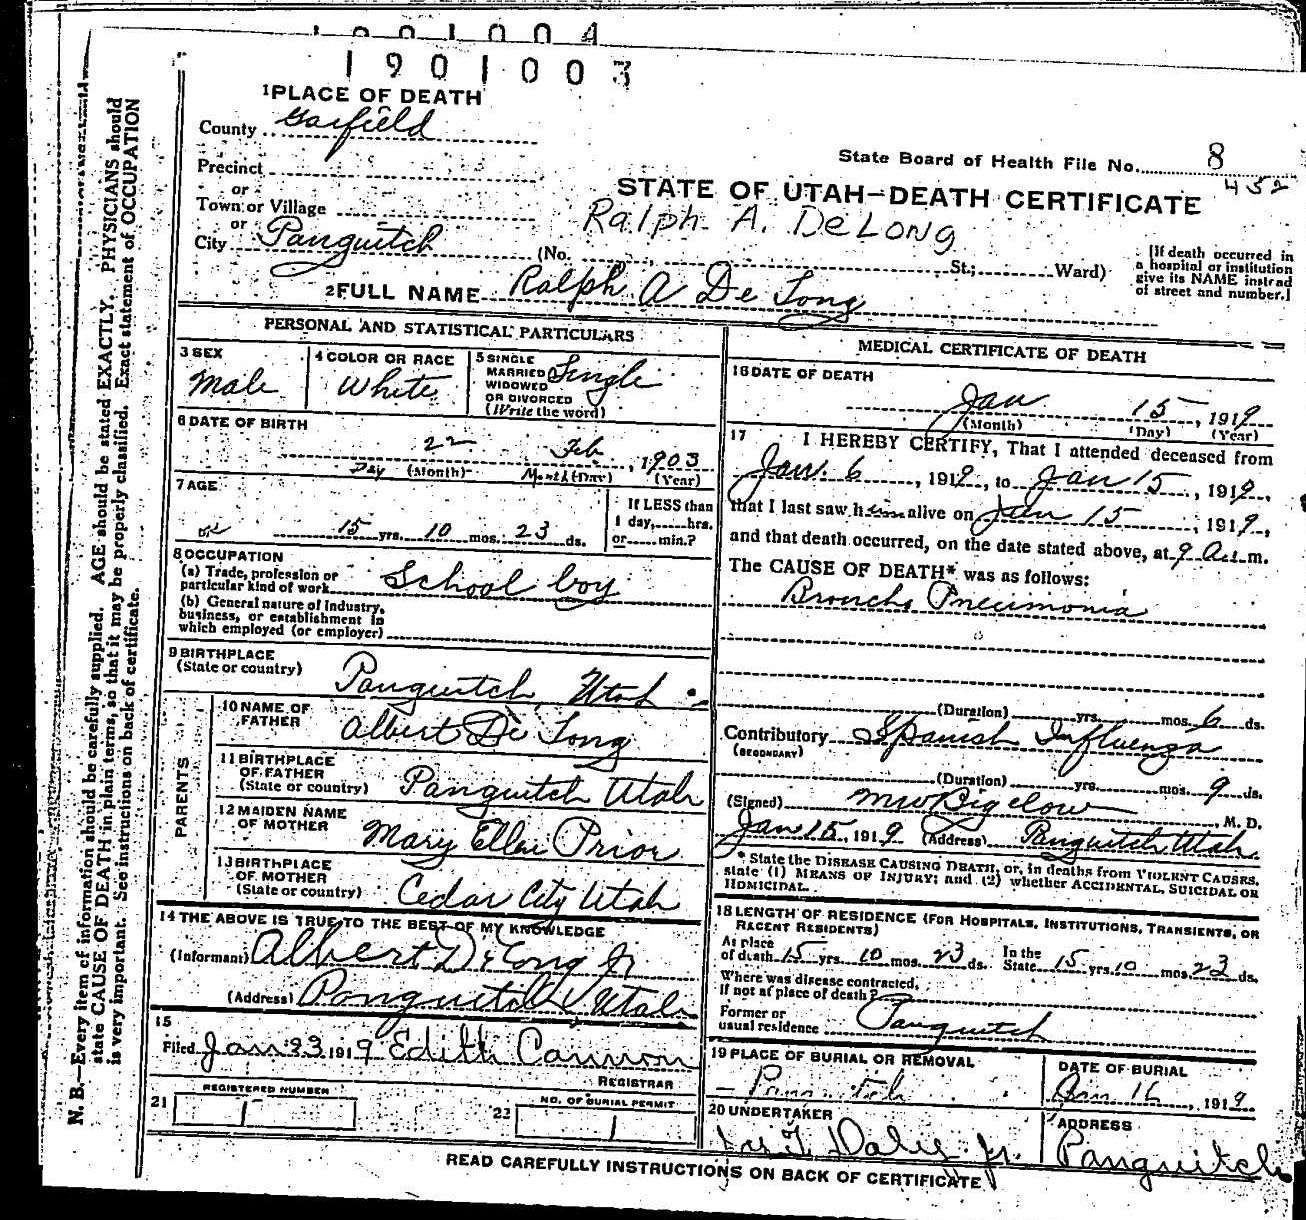 1901004
1901003
1 PLACE OF DEATH
County Garfield
State Board of Health File No. 8
432
Precinct
or
Town or Village
or
City Panguitch
STATE OF UTAH—DEATH CERTIFICATE
Ralph A. DeLong
(No. St.; Ward)
[If death occurred in
a hospital or institution
give its NAME instead
of street and number.]
2 FULL NAME Ralph A De Long
PERSONAL AND STATISTICAL PARTICULARS
3 SEX
Male
4 COLOR OR RACE
White
5 SINGLE
MARRIED
WIDOWED
OR DIVORCED
(Write the word)
Single
6 DATE OF BIRTH
22 Feb, 1903
Day (Month) Month (Day) (Year)
7 AGE
15 yrs. 10 mos. 23 ds.
If LESS than
1 day, hrs.
or min.?
8 OCCUPATION
(a) Trade, profession or
particular kind of work School boy
(b) General nature of Industry,
business, or establishment in
which employed (or employer)
9 BIRTHPLACE
(State or country) Panguitch, Utah
PARENTS
10 NAME OF
FATHER Albert De Long
11 BIRTHPLACE
OF FATHER
(State or country) Panguitch Utah
12 MAIDEN NAME
OF MOTHER Mary Ellen Prior
13 BIRTHPLACE
OF MOTHER
(State or country) Cedar City Utah
14 THE ABOVE IS TRUE TO THE BEST OF MY KNOWLEDGE
(Informant) Albert De Long Jr
(Address) Panguitch Utah
15
Filed Jan 23 1919 Edith Cannon
REGISTRAR
REGISTERED NUMBER
21
NO. OF BURIAL PERMIT
22
MEDICAL CERTIFICATE OF DEATH
16 DATE OF DEATH
Jan 15, 1919
(Month) (Day) (Year)
17 I HEREBY CERTIFY, That I attended deceased from
Jan. 6, 1919, to Jan 15, 1919,
that I last saw him alive on Jan 15, 1919,
and that death occurred, on the date stated above, at 9 A. m.
The CAUSE OF DEATH* was as follows:
Broncho Pneumonia
(Duration) yrs. mos. 6 ds.
Contributory Spanish Influenza
(SECONDARY)
(Duration) yrs. mos. 9 ds.
(Signed) M W Bigelow, M. D.
Jan 15, 1919 (Address) Panguitch Utah.
* State the DISEASE CAUSING DEATH, or, in deaths from VIOLENT CAUSES,
state (1) MEANS OF INJURY; and (2) whether ACCIDENTAL, SUICIDAL OR
HOMICIDAL.
18 LENGTH OF RESIDENCE (FOR HOSPITALS, INSTITUTIONS, TRANSIENTS, OR
RECENT RESIDENTS)
At place
of death 15 yrs. 10 mos. 23 ds. In the
State 15 yrs. 10 mos. 23 ds.
Where was disease contracted,
If not at place of death?
Former or
usual residence Panguitch
19 PLACE OF BURIAL OR REMOVAL
Panguitch
DATE OF BURIAL
Jan 16, 1919
20 UNDERTAKER
Daly Jr.
ADDRESS
Panguitch
READ CAREFULLY INSTRUCTIONS ON BACK OF CERTIFICATE
N. B.—Every item of information should be carefully supplied. AGE should be stated EXACTLY. PHYSICIANS should
state CAUSE OF DEATH in plain terms, so that it may be properly classified. Exact statement of OCCUPATION
is very important. See instructions on back of certificate.